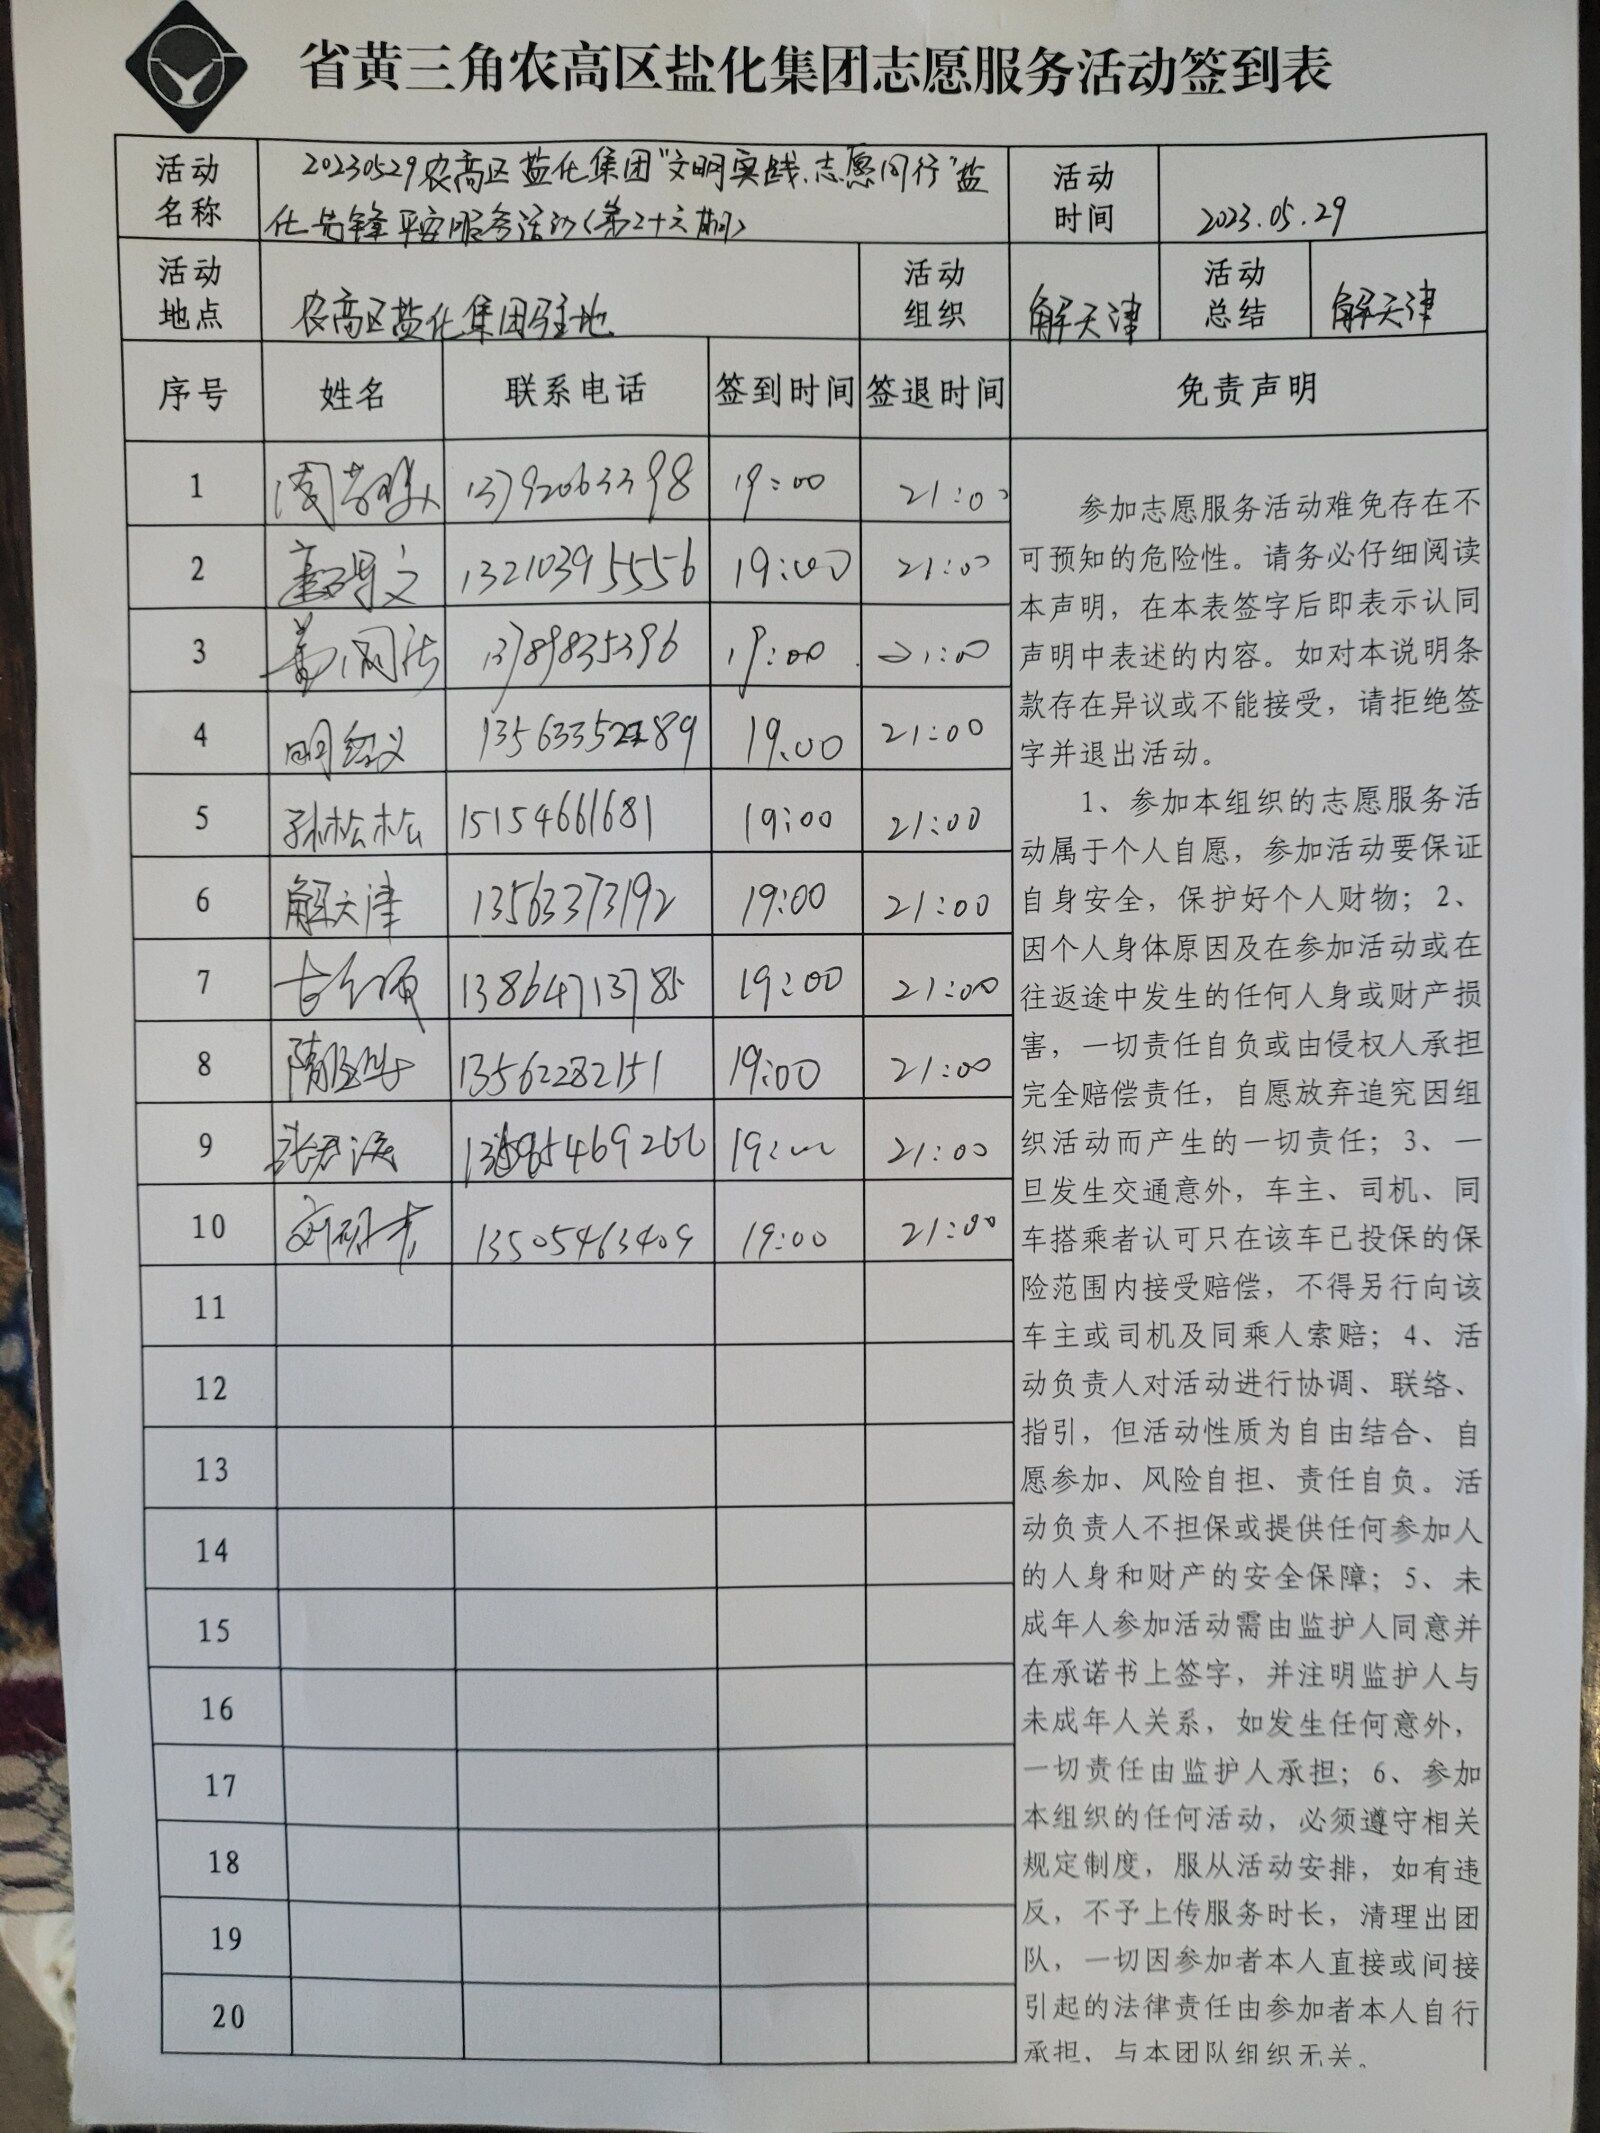 省黄三角农高区盐化集团志愿服务活动签到表
活动名称 20230529农高区盐化集团"文明实践、志愿同行"盐
化先锋平安服务活动(第二十六期)
活动时间 2023.05.29
活动地点 农高区盐化集团驻地
活动组织 解天津
活动总结 解天津
序号 姓名 联系电话 签到时间 签退时间 免责声明
1 13792063398 19:00 21:00
2 13210395556 19:00 21:00
3 13789835396 19:00 21:00
4 明经义 19:00 21:00
5 孙松松 15154661681 19:00 21:00
6 解天津 13563373192 19:00 21:00
7 13864713785 19:00 21:00
8 13562282151 19:00 21:00
9 19:00 21:00
10 13505463409 19:00 21:00
11
12
13
14
15
16
17
18
19
20
参加志愿服务活动难免存在不
可预知的危险性。请务必仔细阅读
本声明，在本表签字后即表示认同
声明中表述的内容。如对本说明条
款存在异议或不能接受，请拒绝签
字并退出活动。
1、参加本组织的志愿服务活
动属于个人自愿，参加活动要保证
自身安全，保护好个人财物；2、
因个人身体原因及在参加活动或在
往返途中发生的任何人身或财产损
害，一切责任自负或由侵权人承担
完全赔偿责任，自愿放弃追究因组
织活动而产生的一切责任；3、一
旦发生交通意外，车主、司机、同
车搭乘者认可只在该车已投保的保
险范围内接受赔偿，不得另行向该
车主或司机及同乘人索赔；4、活
动负责人对活动进行协调、联络、
指引，但活动性质为自由结合、自
愿参加、风险自担、责任自负。活
动负责人不担保或提供任何参加人
的人身和财产的安全保障；5、未
成年人参加活动需由监护人同意并
在承诺书上签字，并注明监护人与
未成年人关系，如发生任何意外，
一切责任由监护人承担；6、参加
本组织的任何活动，必须遵守相关
规定制度，服从活动安排，如有违
反，不予上传服务时长，清理出团
队，一切因参加者本人直接或间接
引起的法律责任由参加者本人自行
承担，与本团队组织无关。